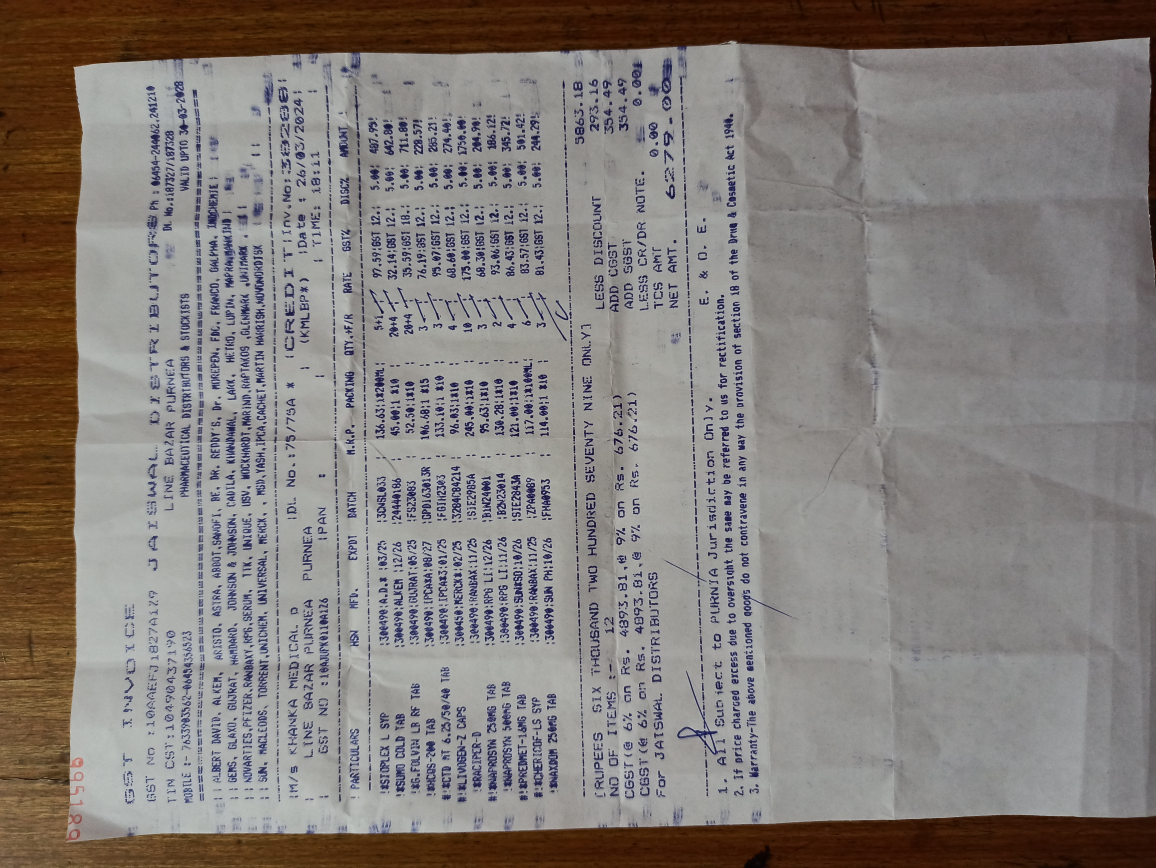 995189
GST INVOICE
GST No :10AAEFJ1827A1Z9 JAISWAL DISTRIBUTORS Ph : 06454-244062,241210
TIN CST:10490437190 LINE BAZAR PURNEA DL No.:187327/187328
MOBILE :- 7633903562-06454356523 PHARMACEUTICAL DISTRIBUTORS & STOCKISTS VALID UPTO 30-03-2028
ALBERT DAVID, ALKEM, ARISTO, ASTRA, ABBOT,SANOFI, BE, DR. REDDY'S, Dr. MOREPEN, FDC, FRANCO, GALPHA, INDCHEMIE
GEMS, GLAXO, GUJRAT, HAMDARD, JOHNSON & JOHNSON, CADILA, KHANDAWAL, LARK, HETRO, LUPIN,
NOVARTIES,PFIZER,RANBAXY,RPG,SERUM, TTK, UNIQUE, USV, WOCKHARDT,MARIND,RAPTAKOS ,GLENMARK ,UNIMARK
SUN, MACLEODS, TORRENT,UNICHEM, UNIVERSAL, MERCK, MSD,YASH,IPCA,CACHET,MARTIN HARRISH,NOVONORDISK
M/s KHANKA MEDICAL D DL No.:75/75A * CREDIT Inv.No:38288
LINE BAZAR PURNEA PURNEA (KMLBP*) Date : 26/03/2024
GST NO :10AJUPK0110A1Z6 PAN : TIME: 18:11
PARTICULARS HSN MFD. EXPDT BATCH M.R.P. PACKING QTY.+F/R RATE GST% DISC% AMOUNT
STOPLEX L SYP 300490 A.D.* 03/25 3DNSL033 136.63 1*200ML 5+1 97.59 GST 12. 5.00 487.95
SUMO COLD TAB 300490 ALKEM 12/26 24440186 45.00 1*10 20+4 32.14 GST 12. 5.00 642.80
G.FOLVIN LR RF TAB 300490 GUJRAT 05/25 FS23083 52.50 1*10 20+4 35.59 GST 18. 5.00 711.80
HCQS-200 TAB 300490 IPCA*A 08/27 GPD163013R 106.68 1*15 3 76.19 GST 12. 5.00 228.57
CTD MT 6.25/50/40 TAB 300490 IPCA*3 01/25 133.10 1*10 3 95.07 GST 12. 5.00 285.21
LIVOGEN-Z CAPS 300450 MERCK* 02/25 3284C84214 96.03 1*10 4 68.60 GST 12. 5.00 274.40
RACIPER-D 300490 RANBAX 11/25 SIE2985A 245.00 1*10 10 175.00 GST 12. 5.00 1750.00
NAPROSYN 250MG TAB 300490 RPG LI 12/26 B1N24001 95.63 1*10 3 68.30 GST 12. 5.00 204.90
NAPROSYN 500MG TAB 300490 RPG LI 11/26 B2N23014 130.28 1*10 2 93.06 GST 12. 5.00 186.12
PREDMET-16MG TAB 300490 SUN*SO 10/26 SIE2843A 121.00 1*10 4 86.43 GST 12. 5.00 345.72
CHERICOF-LS SYP 300490 RANBAX 11/25 ZPA0089 117.00 1*100ML 6 83.57 GST 12. 5.00 501.42
MAXDOM 250MG TAB 300490 SUN PH 10/26 FHA0953 114.00 1*10 3 81.43 GST 12. 5.00 244.29
5863.18
[RUPEES SIX THOUSAND TWO HUNDRED SEVENTY NINE ONLY] LESS DISCOUNT 293.16
NO OF ITEMS :- 12 ADD CGST 354.49
CGST(@ 6% on Rs. 4893.81,@ 9% on Rs. 676.21) ADD SGST 354.49
CGST(@ 6% on Rs. 4893.81,@ 9% on Rs. 676.21) LESS CR/DR NOTE. 0.00
For JAISWAL DISTRIBUTORS TCS AMT 0.00
NET AMT. 6279.00
E. & O. E.
1. All Subject to PURNIA Jurisdiction Only.
2. If price charged excess due to oversight the same may be referred to us for rectification.
3. Warranty-The above mentioned goods do not contravene in any way the provision of section 18 of the Drug & Cosmetic Act 1940.